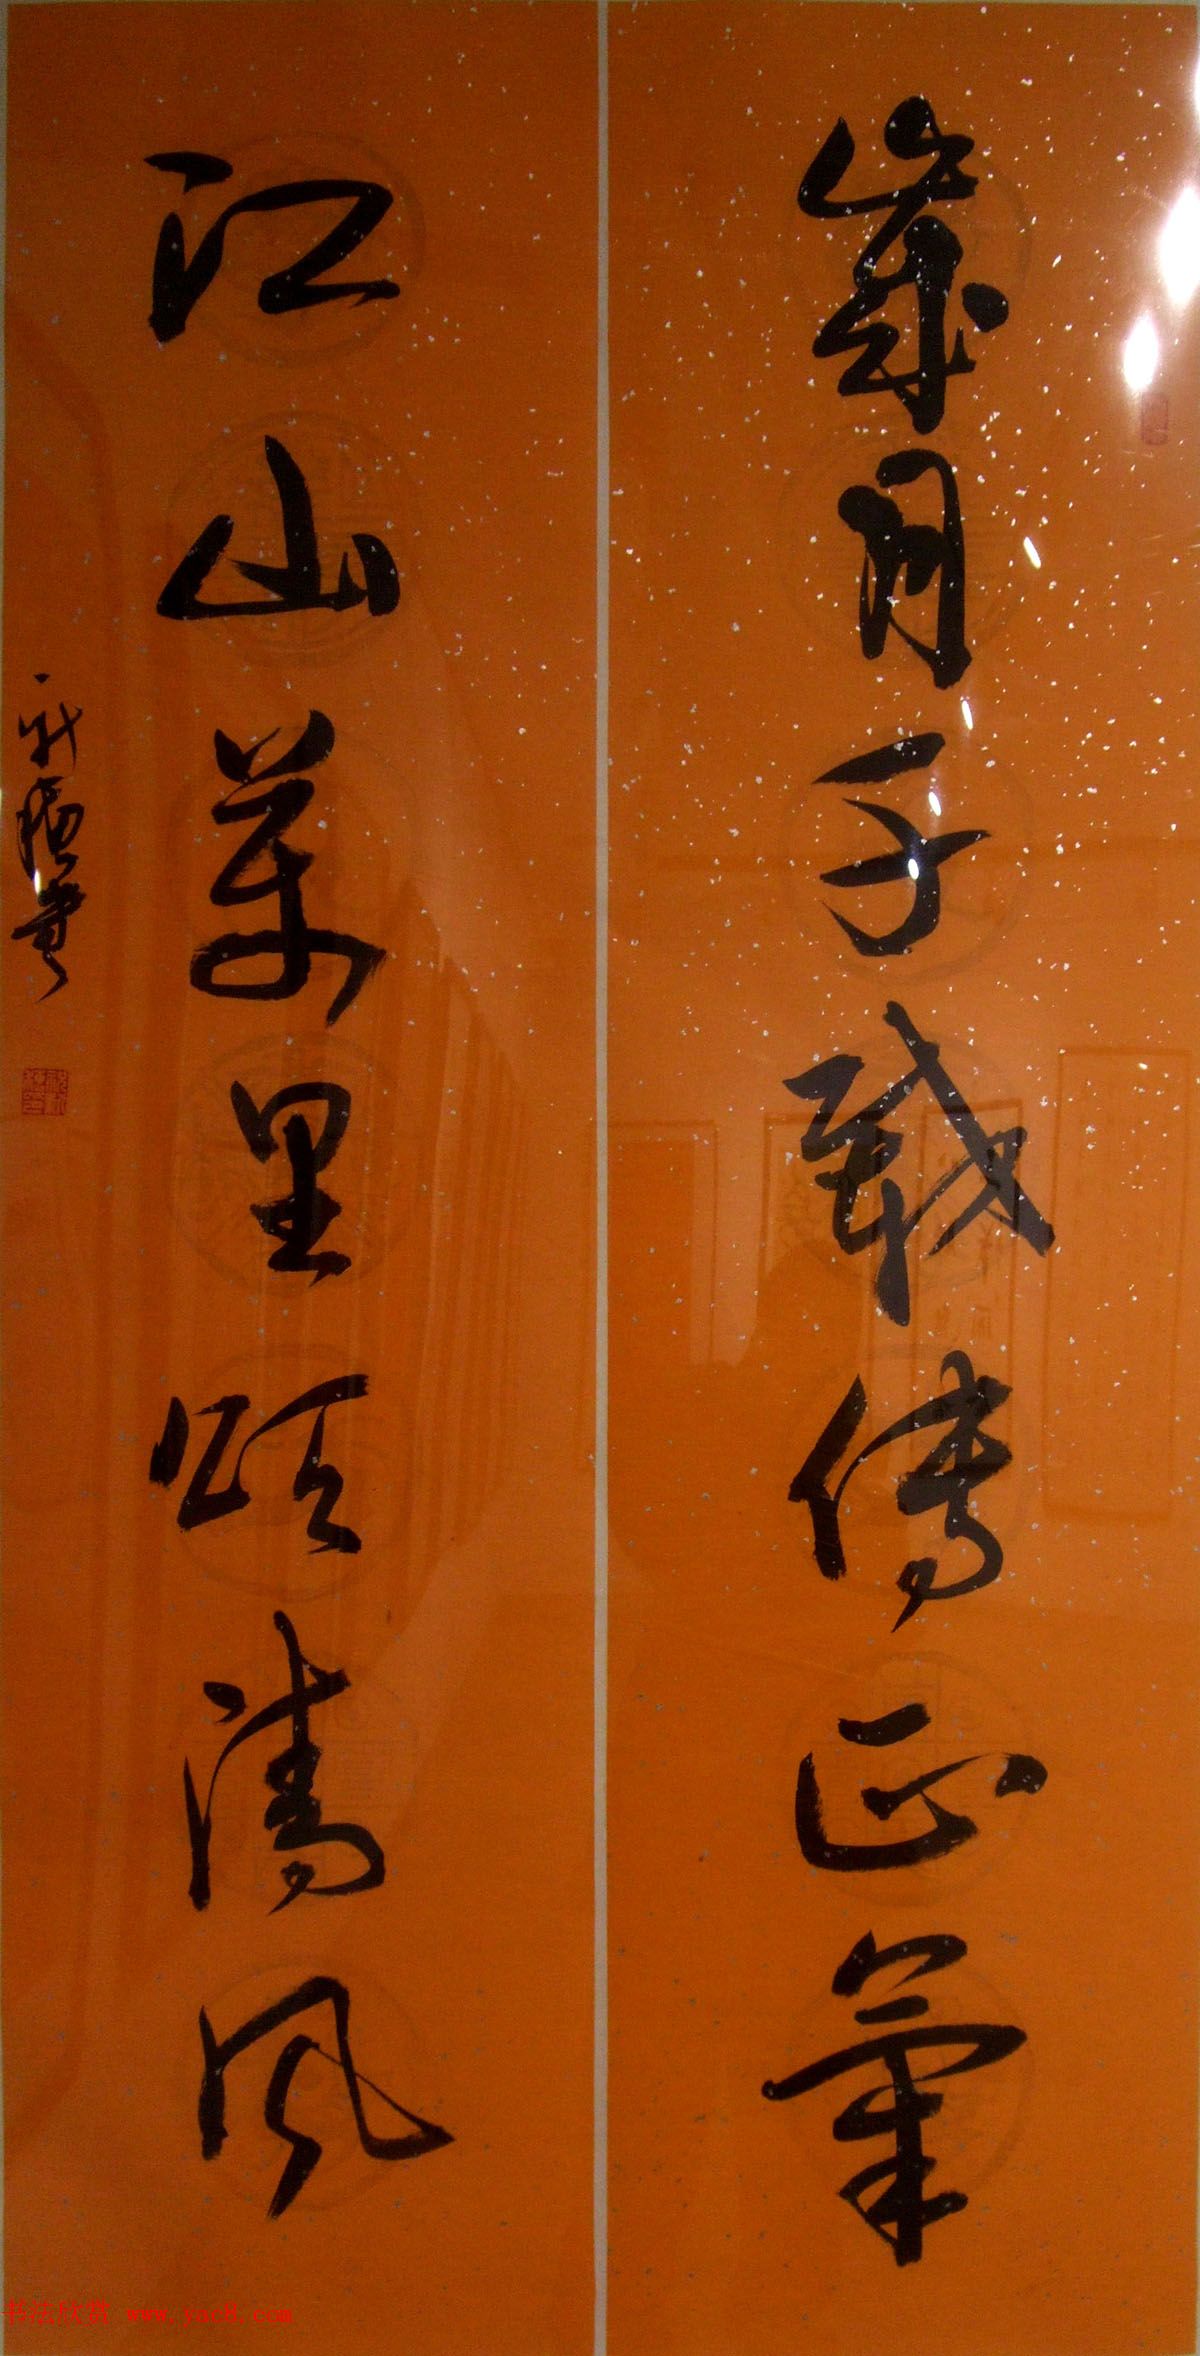 歲月千載傳正氣
江山萬里頌清風
书法欣赏 www.yac8.com